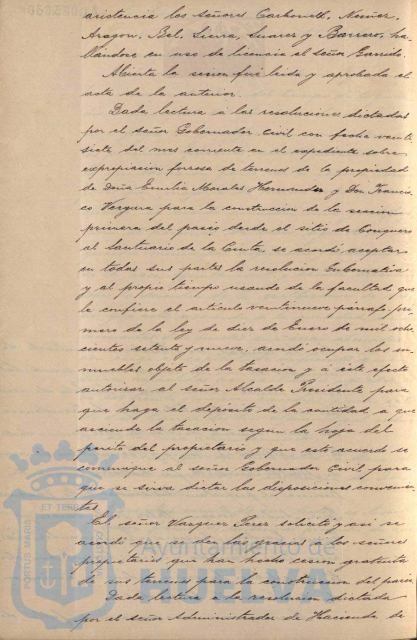 asistencia los señores Carbonell, Nuñez,
Aragon, Bel, Sierra, Suarez y Barrero, ha-
llándose en uso de licencia el señor Garrido.
Abierta la sesion fué leida y aprobada el
acta de la anterior.
Dada lectura á las resoluciones dictadas
por el señor Gobernador Civil con fecha veinti
siete del mes corriente en el expediente sobre
expropiacion forzosa de terrenos de la propiedad
de Doña Emilia Morales Hernandez y Don Francis-
co Vergara para la construccion de la seccion
primera del paseo desde el sitio de Conquero
al Santuario de la Cinta, se acordó aceptar
en todas sus partes la resolucion Gubernativa
y al propio tiempo usando de la facultad que
le confiere el artículo veintinueve párrafo pri-
mero de la ley de diez de Enero de mil ocho
cientos setenta y nueve, acordó ocupar los in-
muebles objeto de la tasacion y á este efecto
autorizar al señor Alcalde Presidente para
que haga el depósito de la cantidad a que
asciende la tasacion segun la hoja del
perito del propietario y que este acuerdo se
comunique al señor Gobernador Civil para
que se sirva dictar las disposiciones convenien-
tes.
El señor Vazquez Perez solicitó y asi se
acordó que se den las gracias á los señores
propietarios que han hecho cesion gratuita
de sus terrenos para la construccion del paseo.
Dada lectura á la resolucion dictada
por el señor Administrador de Hacienda de
PORTUS MARIS
ET TERRÆ
Ayuntamiento de
HUELVA